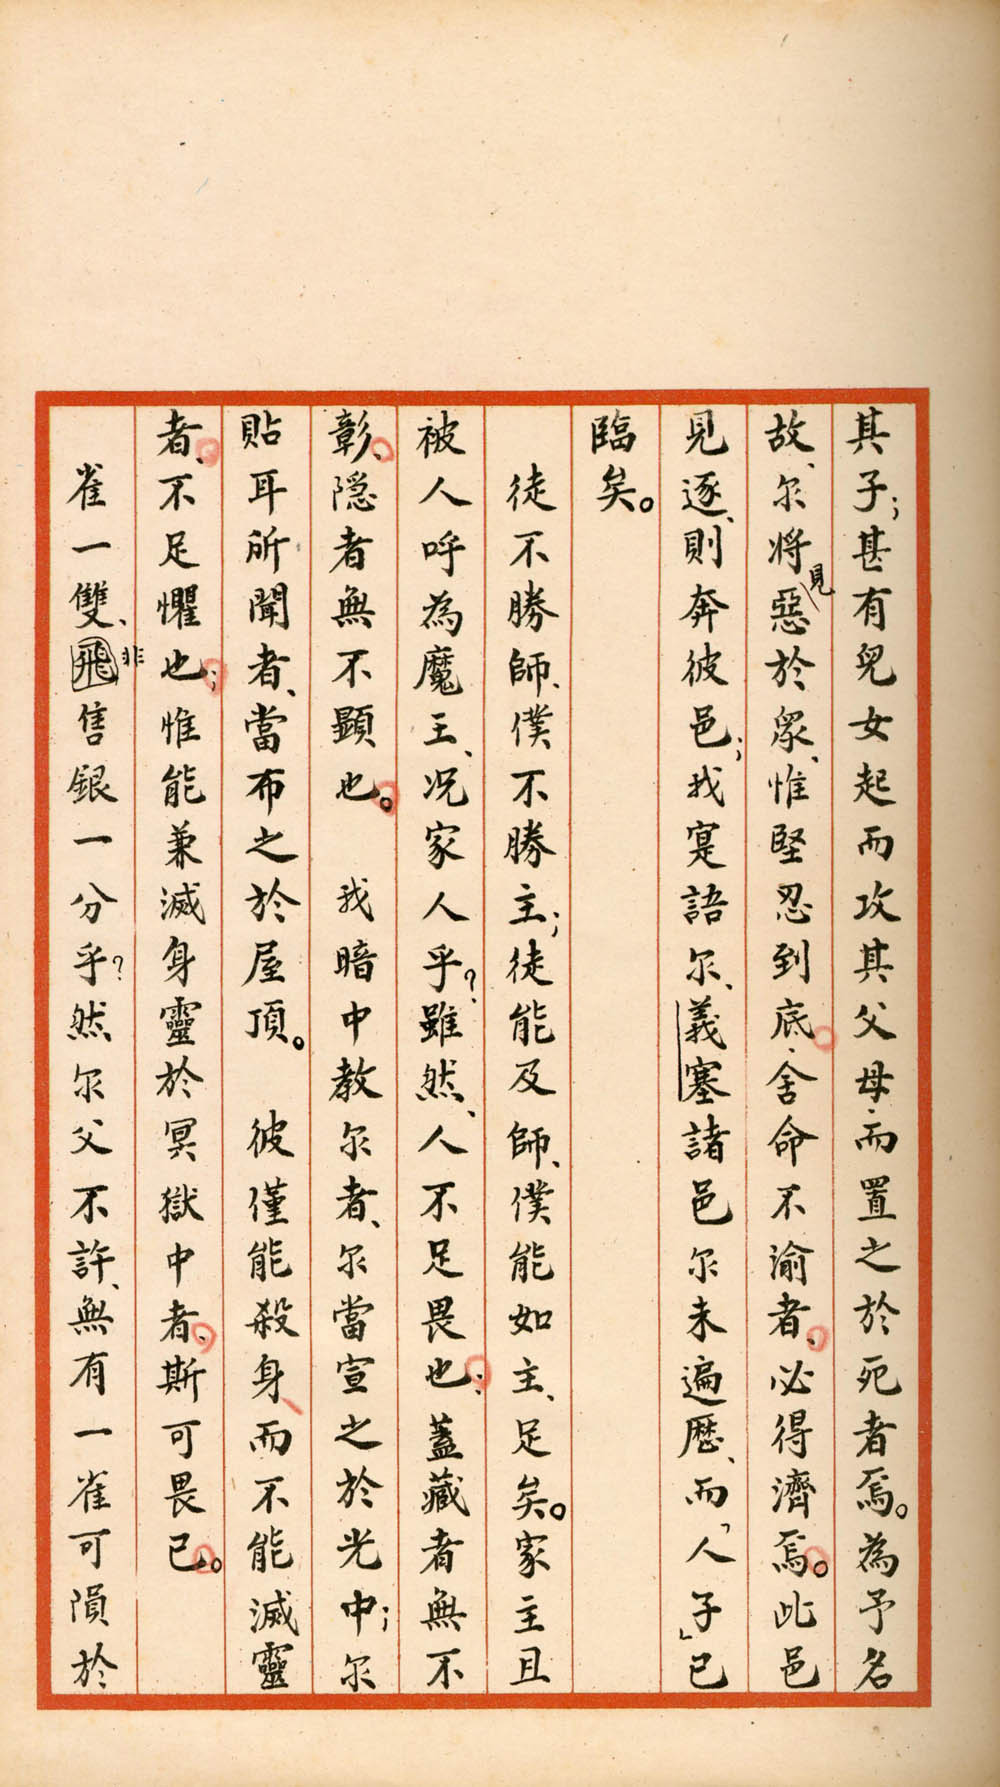 其子；甚有兒女起而攻其父母、而置之於死者焉。為予名
故、尔將見惡於眾、惟堅忍到底、舍命不渝者、必得濟焉。此邑
見逐、則奔彼邑；我寔語尔、義塞諸邑尔未遍歷、而「人子」已
臨矣。
徒不勝師、僕不勝主；徒能及師、僕能如主、足矣。家主且
被人呼為魔王、况家人乎？雖然、人不足畏也；蓋藏者無不
彰、隱者無不顯也。　我暗中教尔者、尔當宣之於光中；尔
貼耳所聞者、當布之於屋頂。　彼僅能殺身、而不能滅靈
者、不足懼也；惟能兼滅身靈於冥獄中者、斯可畏已。
雀一雙、飛非售銀一分乎？然尔父不許、無有一雀可隕於